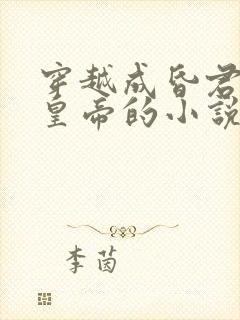 穿越成昏君
皇帝的小說
李茵